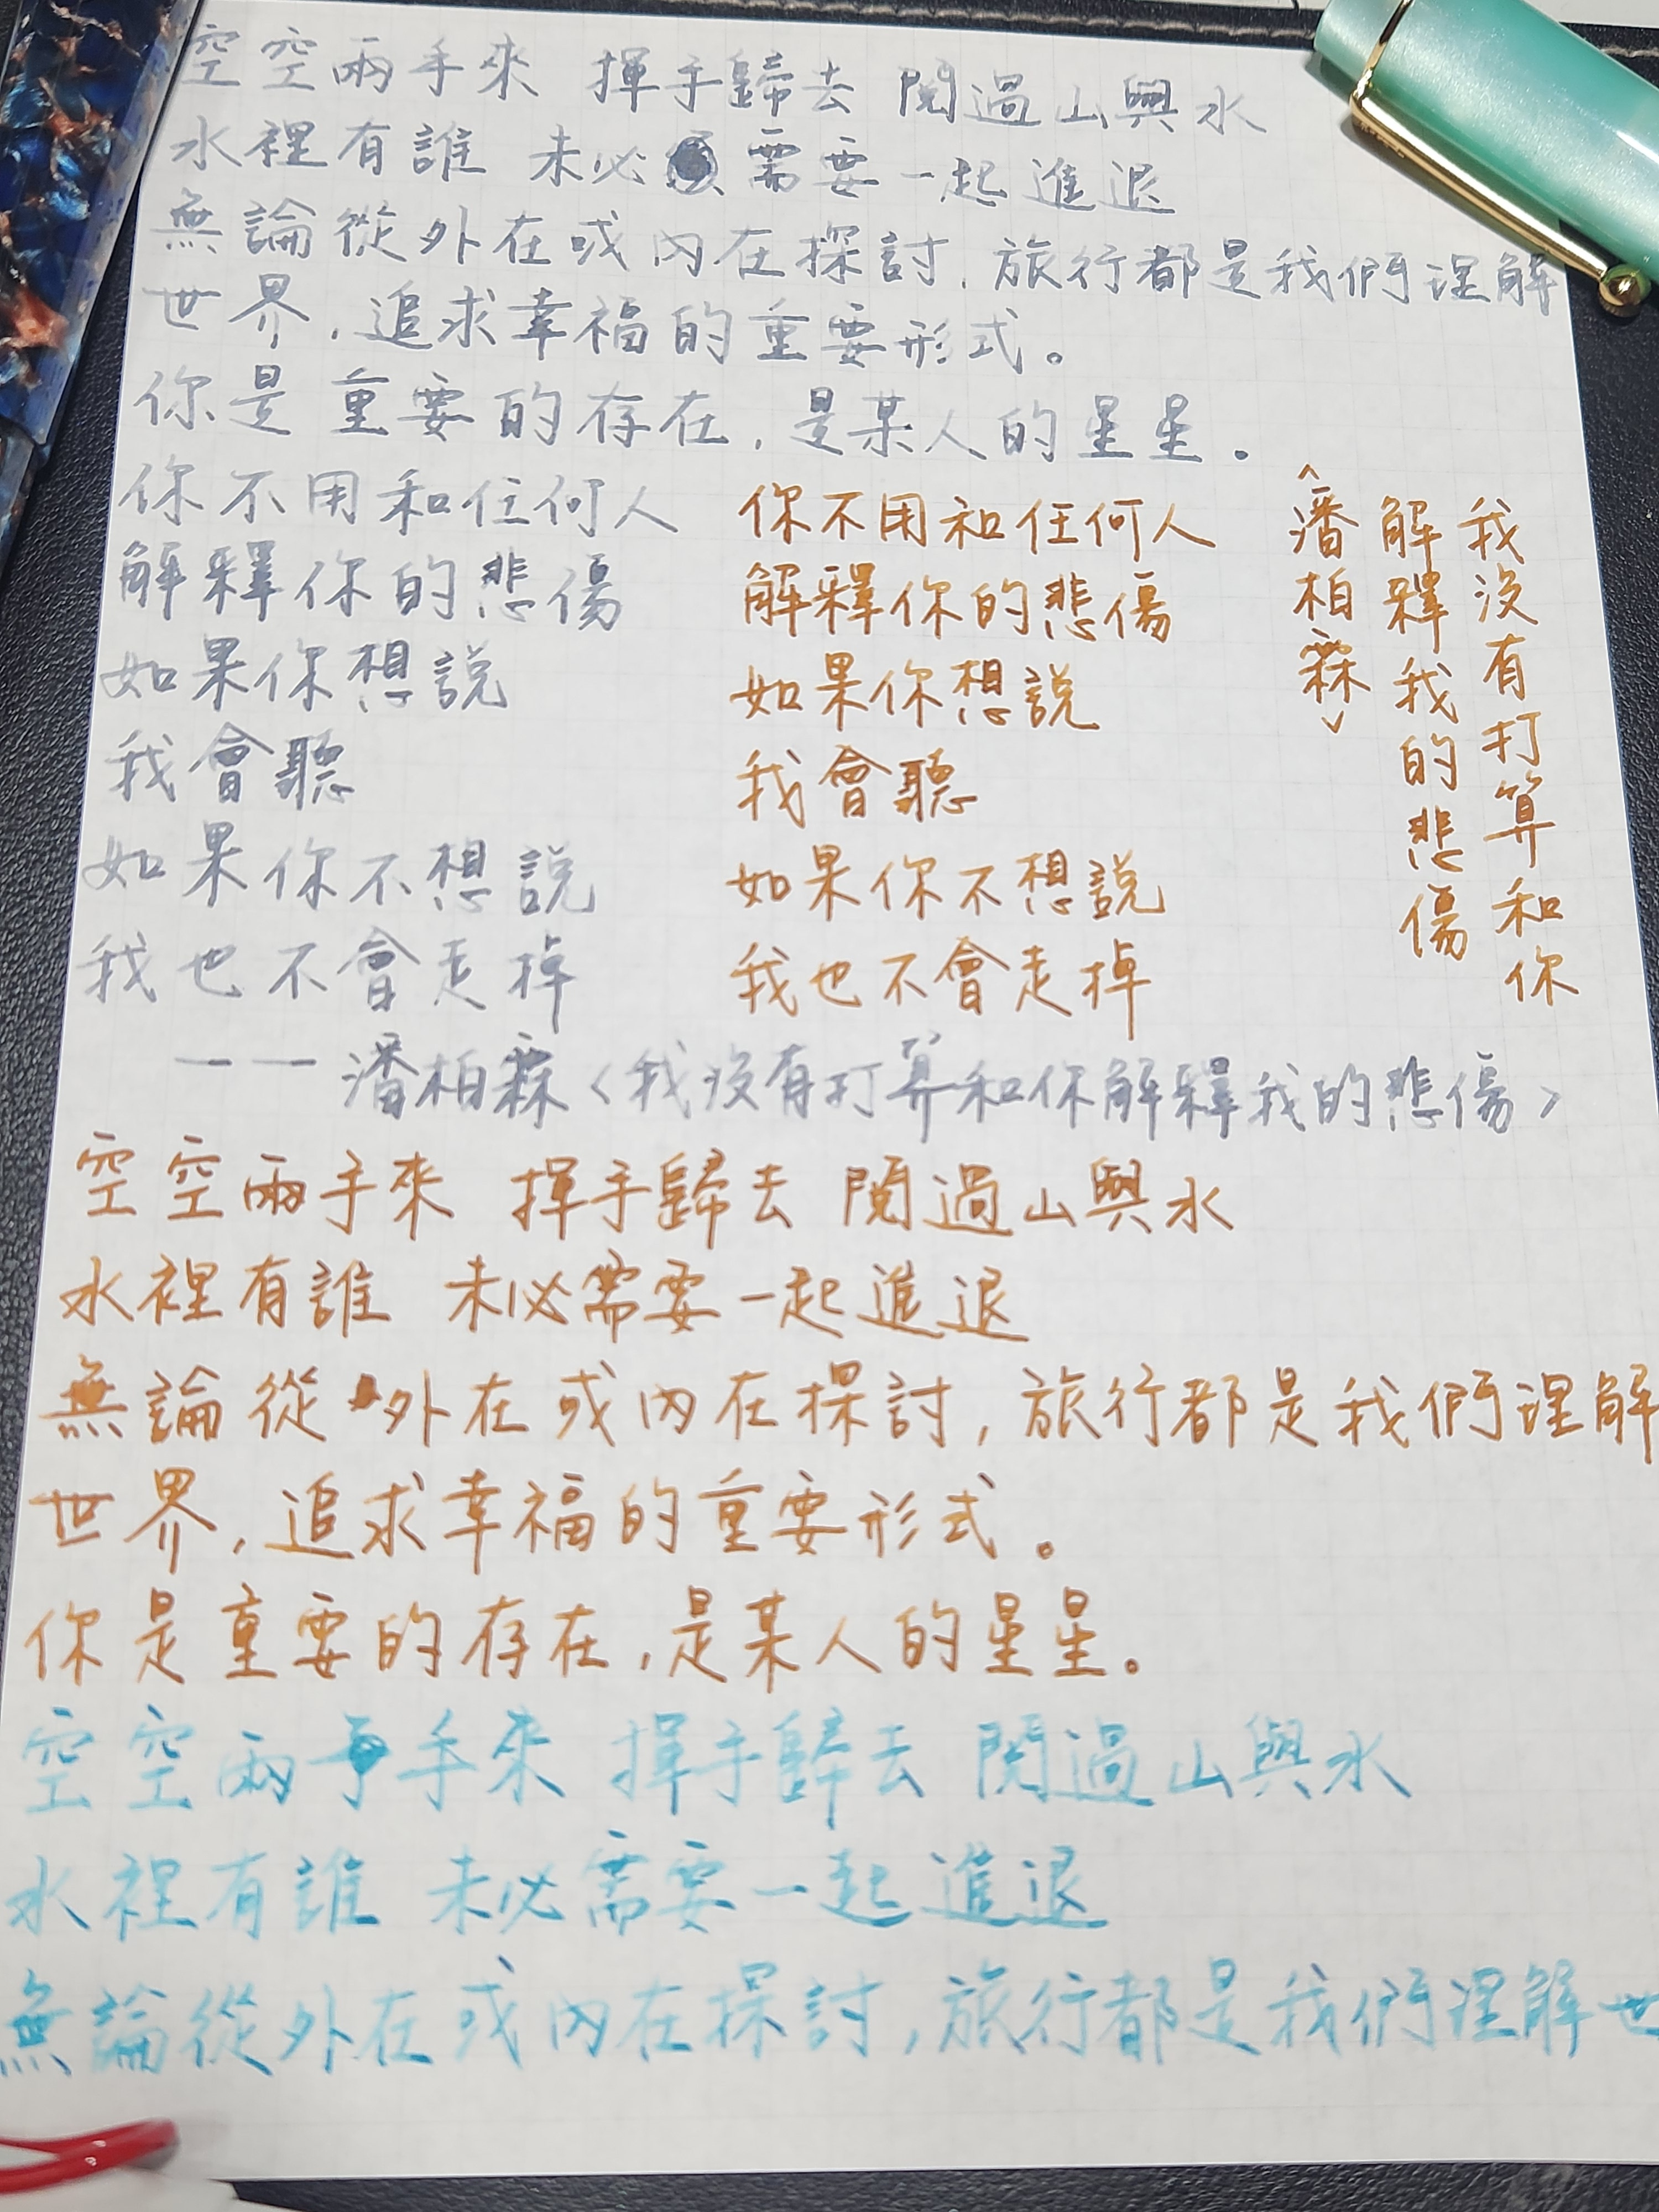 空空兩手來 揮手歸去 閱過山與水
水裡有誰 未必需要一起進退
無論從外在或內在探討,旅行都是我們理解
世界,追求幸福的重要形式。
你是重要的存在,是某人的星星。
你不用和任何人
解釋你的悲傷
如果你想說
我會聽
如果你不想說
我也不會走掉
——潘柏霖〈我沒有打算和你解釋我的悲傷〉
你不用和任何人
解釋你的悲傷
如果你想說
我會聽
如果你不想說
我也不會走掉
我沒有打算和你
解釋我的悲傷
〈潘柏霖〉
空空兩手來 揮手歸去 閱過山與水
水裡有誰 未必需要一起進退
無論從外在或內在探討,旅行都是我們理解
世界,追求幸福的重要形式。
你是重要的存在,是某人的星星。
空空兩手來 揮手歸去 閱過山與水
水裡有誰 未必需要一起進退
無論從外在或內在探討,旅行都是我們理解世